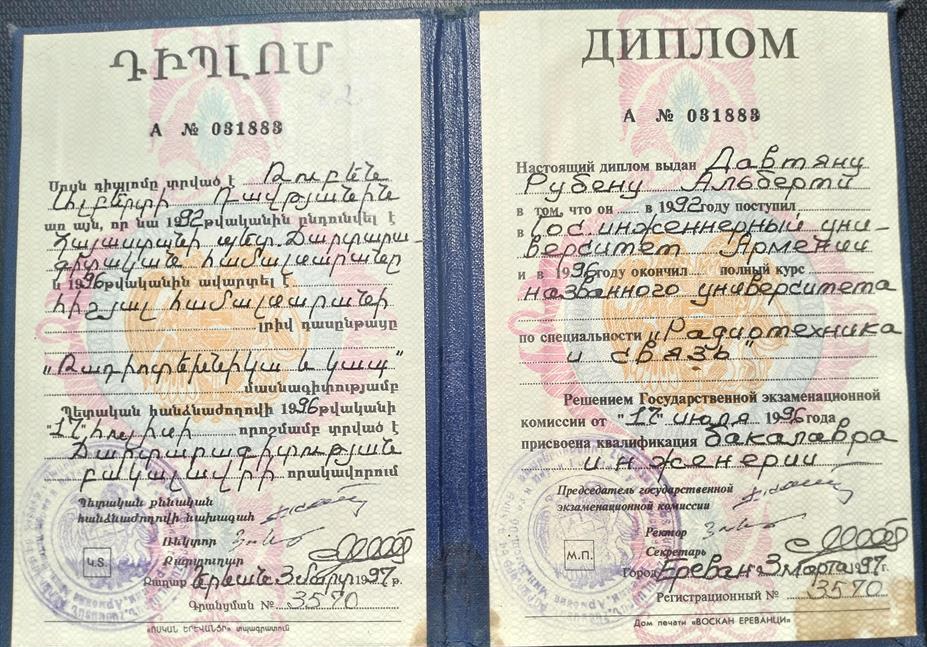 ԴԻՊԼՈՄ
А № 031883
Սույն դիպլոմը տրված է Ռուբեն
Ալբերտի Դավթյանին
առ այն, որ նա 1992 թվականին ընդունվել է
Հայաստանի պետ. Ճարտարա-
գիտական համալսարանը
և 1996 թվականին ավարտել է
հիշյալ համալսարանի
լրիվ դասընթացը
„Ռադիոտեխնիկա և կապ"
մասնագիտությամբ
Պետական հանձնաժողովի 1996 թվականի
"17" հուլիսի որոշմամբ տրված է
Ճարտարագիտության
բակալավրի որակավորում
Պետական քննական
հանձնաժողովի նախագահ
Ռեկտոր
Քարտուղար
Կ.Տ.
Քաղաք Երևան 3 մարտի 1997 թ.
Գրանցման № 3570
«ՈՍԿԱՆ ԵՐԵՎԱՆՑԻ» տպագրատուն
ДИПЛОМ
А № 031883
Настоящий диплом выдан Давтяну
Рубену Альберти
в том, что он в 1992 году поступил
в Гос. инженнерный уни-
верситет Армении
и в 1996 году окончил полный курс
названного университета
по специальности „Радиотехника
и связь"
Решением Государственной экзаменационной
комиссии от "17" июля 1996 года
присвоена квалификация бакалавра
инженерии
Председатель государственной
экзаменационной комиссии
Ректор
Секретарь
М.П.
Город Ереван 3 марта 1997 г.
Регистрационный № 3570
Дом печати «ВОСКАН ЕРЕВАНЦИ»